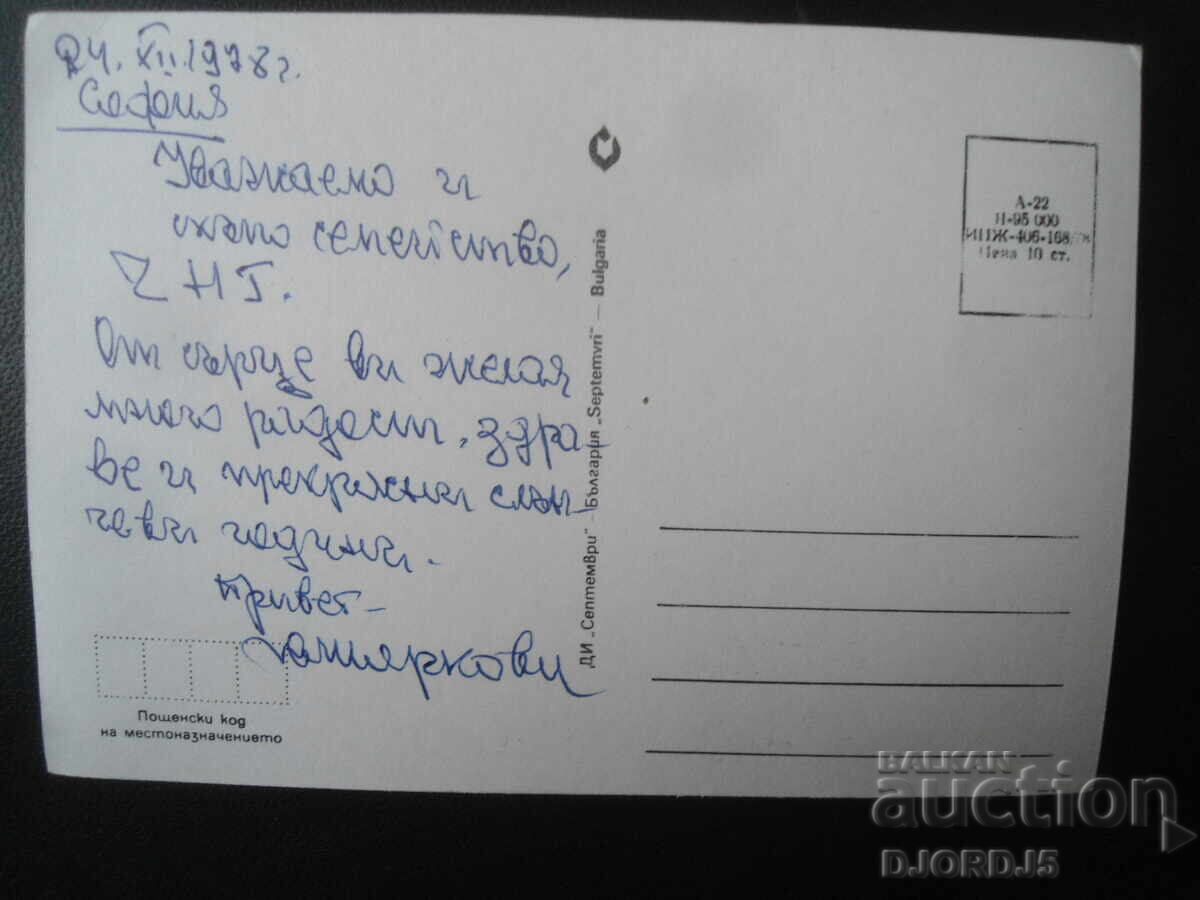 24.XII.1978г.
София
Уважаемо и
семейство,
ЧНГ.
От сърце ви желая
много радост, здра-
ве и прекрасни слън-
чеви години.
Привет-
ДИ „Септември" - България „Septemvri" — Bulgaria
А-22
Н-95 000
ИПЖ-406-168/78
Цена 10 ст.
Пощенски код
на местоназначението
BALKAN
auction
DJORDJ5